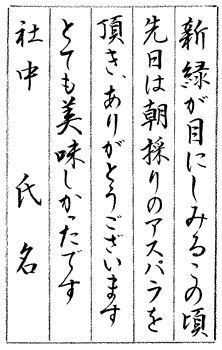 新緑が目にしみるこの頃
先日は朝採りのアスパラを
頂き、ありがとうございます
とても美味しかったです
社中　氏名